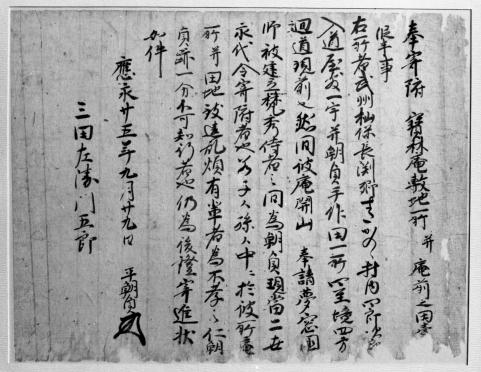 奉寄附 寳林庵敷地一所 并 庵前之田壹
段半事
右一所者武州杣保長渕郷 村内
入道屋敷一宇并朝貞手作田一所 堺四方
迴道現前也然間彼庵開山 奉請夢窓国
師被建立梵秀侍者之間為朝貞現當二世
永代令寄附者也若子々孫々中ニ於彼所庵
所并田地致違乱煩有輩者為不孝之仁朝
貞跡一分不可知行者也仍為後證寄進状
如件
應永廿五年九月廿九日 平朝貞
三田左衛門五郎